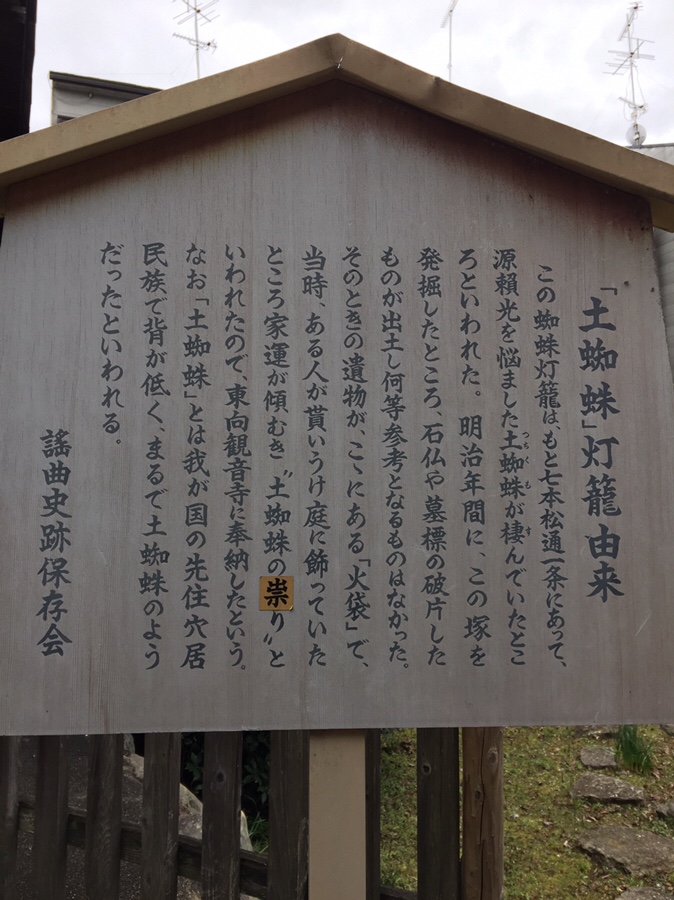 「土蜘蛛」灯籠由来
この蜘蛛灯籠は、もと七本松通一条にあって、
源頼光を悩ました土蜘蛛が棲んでいたとこ
つちぐも す
ろといわれた。明治年間に、この塚を
発掘したところ、石仏や墓標の破片した
ものが出土し何等参考となるものはなかった。
そのときの遺物が、こゝにある「火袋」で、
当時、ある人が貰いうけ庭に飾っていた
ところ家運が傾むき〝土蜘蛛の祟り〟と
いわれたので、東向観音寺に奉納したという。
なお「土蜘蛛」とは我が国の先住穴居
民族で背が低く、まるで土蜘蛛のよう
だったといわれる。
謡曲史跡保存会